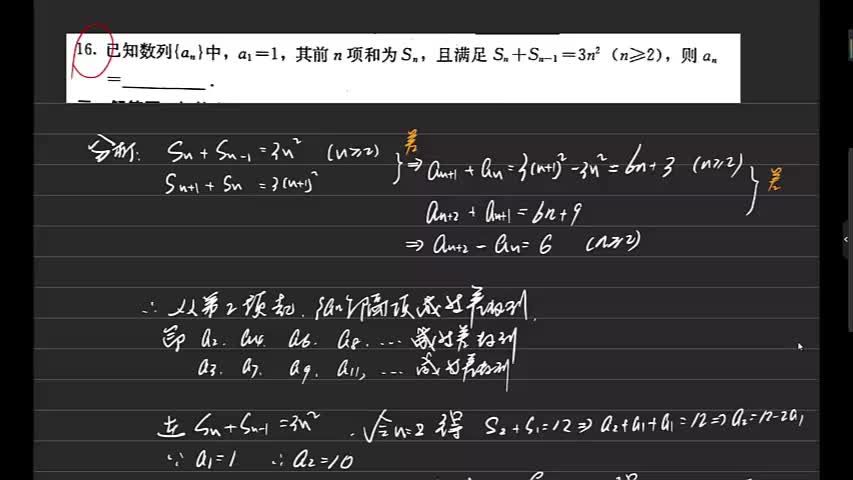 16. 已知数列{aₙ}中，a₁=1，其前 n 项和为 Sₙ，且满足 Sₙ+Sₙ₋₁=3n²（n≥2），则 aₙ
=________．
分析: Sₙ + Sₙ₋₁ = 3n² (n≥2)
Sₙ₊₁ + Sₙ = 3(n+1)²
差
⇒ aₙ₊₁ + aₙ = 3(n+1)² - 3n² = 6n + 3 (n≥2)
aₙ₊₂ + aₙ₊₁ = 6n + 9
差
⇒ aₙ₊₂ - aₙ = 6 (n≥2)
∴ 从第2项起, {aₙ}隔项成等差数列.
即 a₂. a₄. a₆. a₈. ... 成等差数列
a₃. a₇. a₉. a₁₁, ... 成等差数列
在 Sₙ + Sₙ₋₁ = 3n² . 令n=2 得 S₂ + S₁ = 12 ⇒ a₂ + a₁ + a₁ = 12 ⇒ a₂ = 12 - 2a₁
∵ a₁ = 1 ∴ a₂ = 10